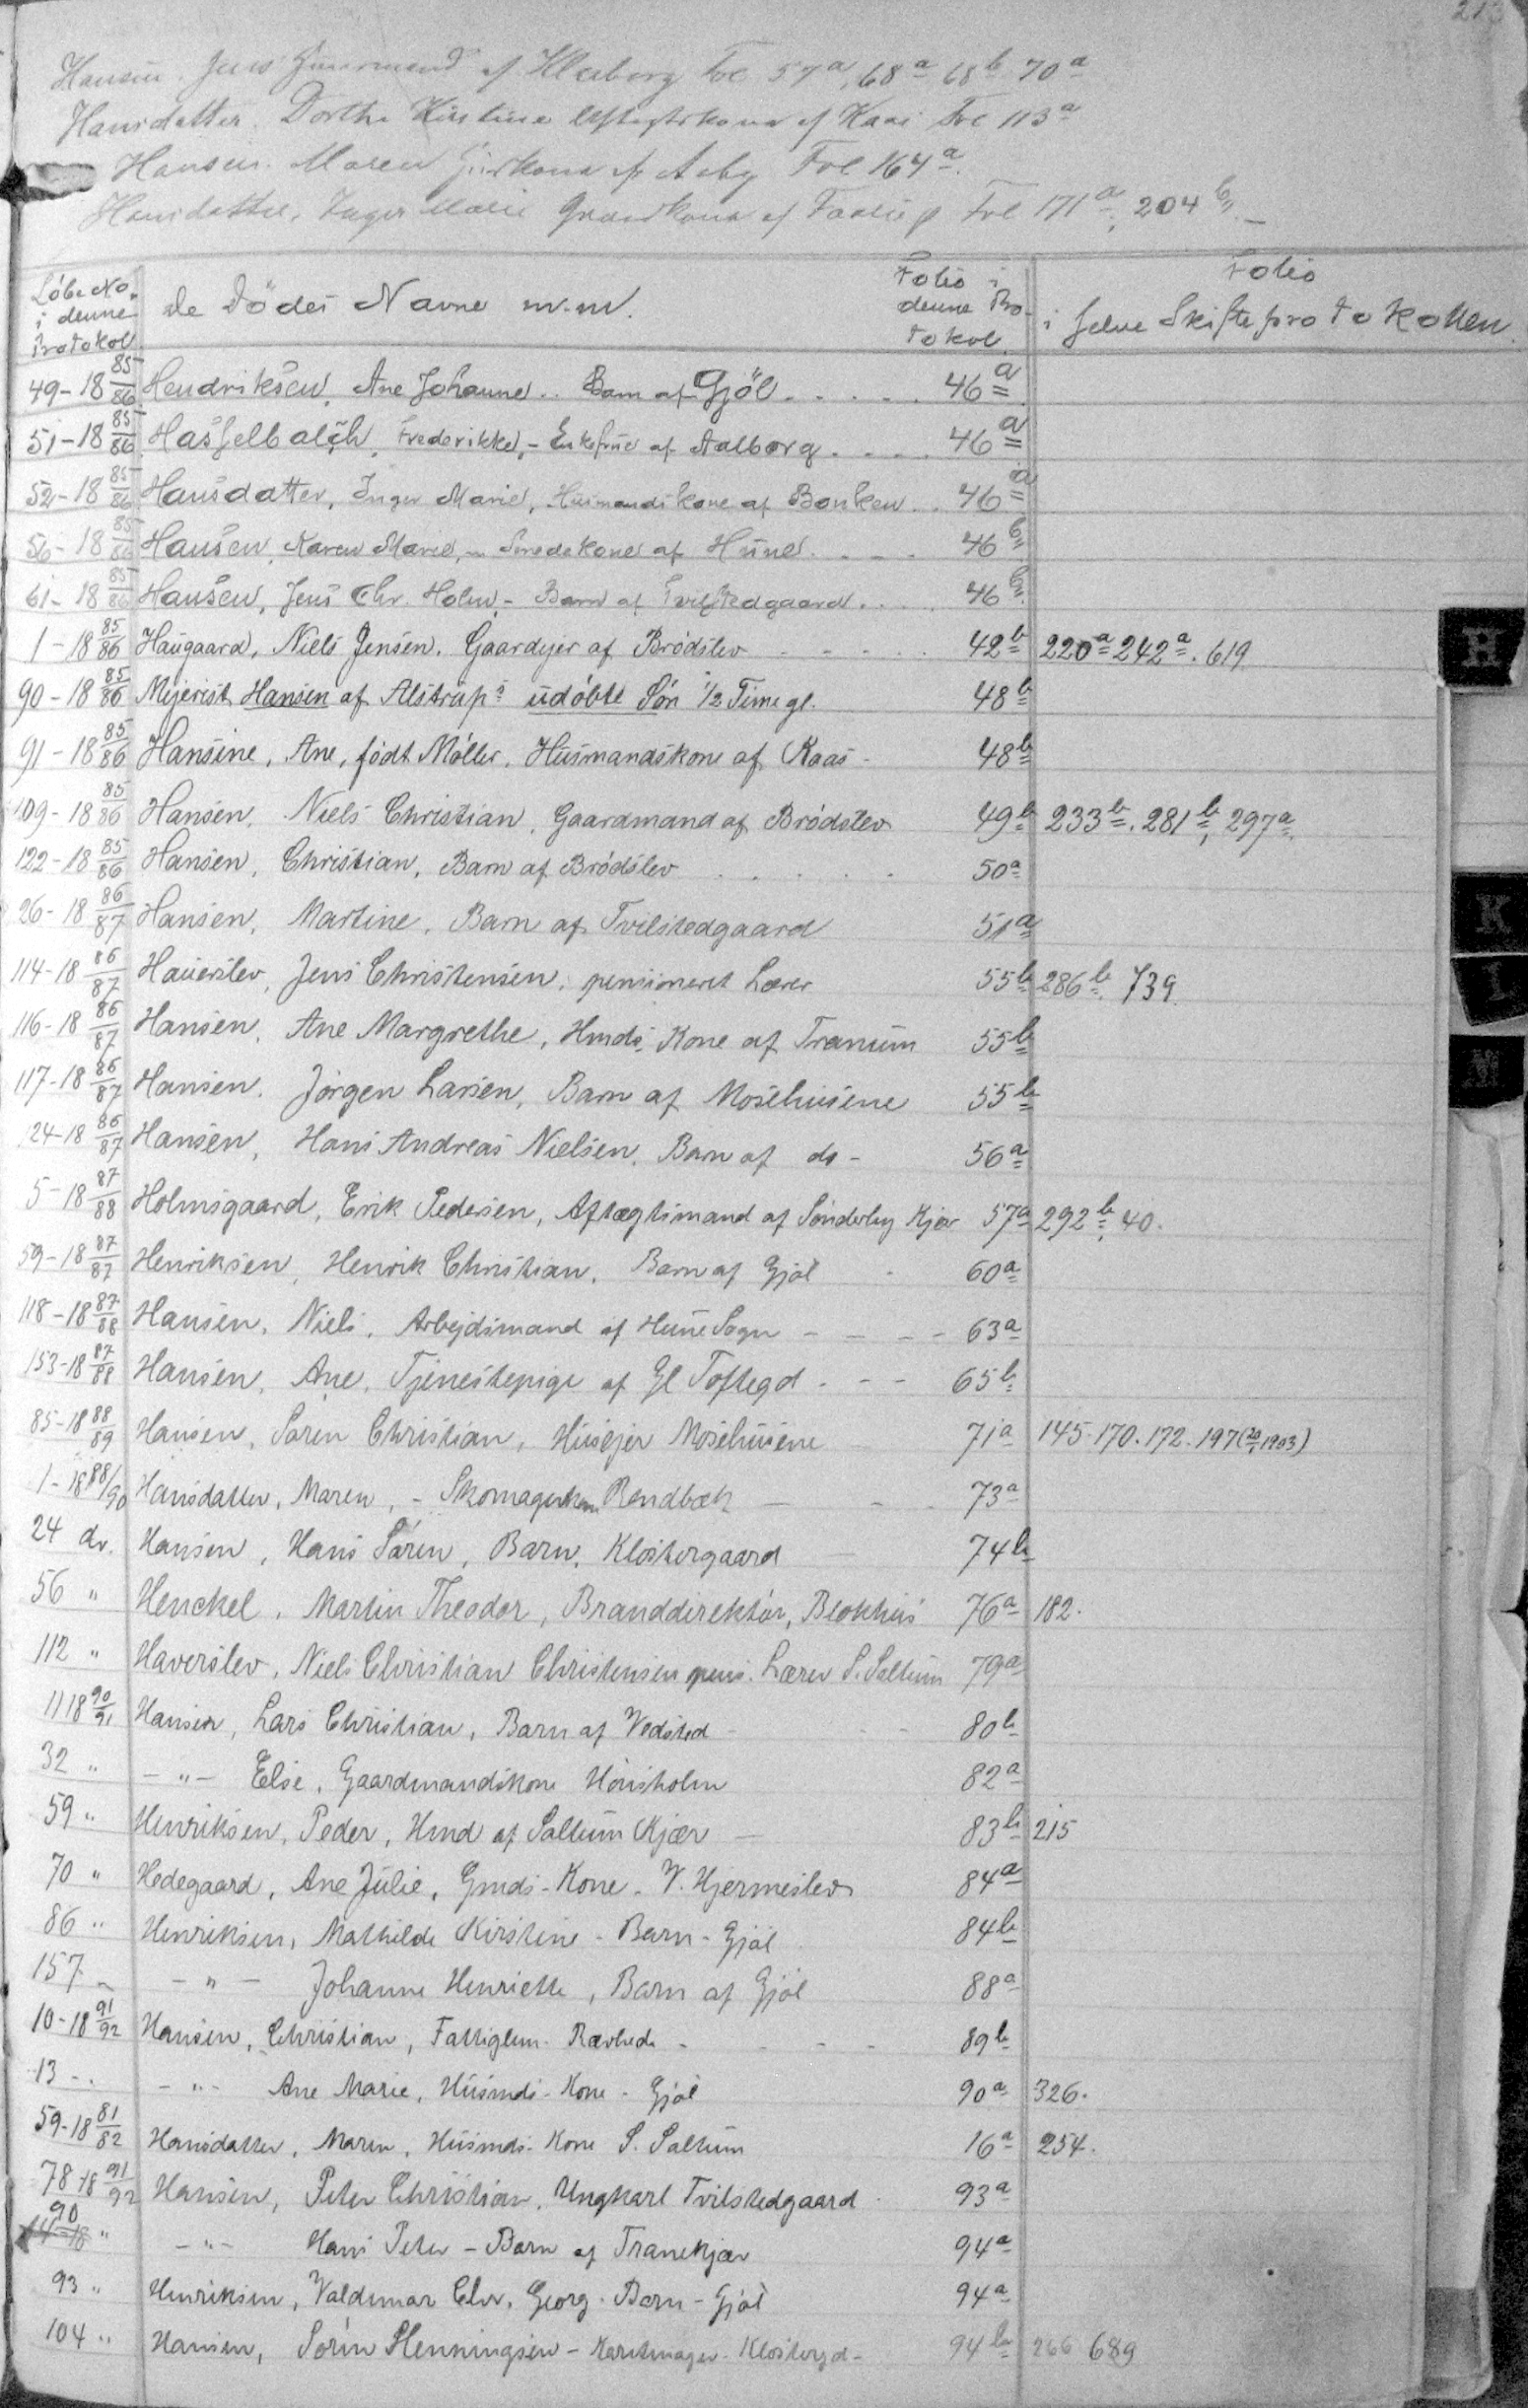 213
Hansen. Jens Huusmand af Kleeborg Fol 57a, 68a 68b 70a
Hansdatter. Dorthe Kirstine Aftægtskone af Kaas Fol 113a
Hansen. Maren af Aaby Fol 164a.
Hansdatter, Inger Marie Gaardkone af Faarup Fol 171a, 204b
Løbe No. i denne Protokol. De Dödes Navne m.m. Folio i denne Protokol Folio i selve Skifteprotokollen.
49-18 85/86 Hendriksen, Ane Johanne.. Barn af Gjöl 46a
51-18 85/86 Hasselbalch, Frederikke, - Enkefrue af Aalborg 46a
52-18 85/86 Hansdatter, Inger Marie, Huusmandskone af Bonken 46a
56-18 85/86 Hansen, Karen Marie, - Smedekone af Hune 46b
61-18 85/86 Hansen, Jens Chr. Holm - Barn af Tvilstedgaard 46b
1-18 85/86 Haugaard, Niels Jensen. Gaardejer af Brödslev 42b 220a 242a. 619
90-18 85/86 Mejerist Hansen af Alstrups udöbte Sön 1/2 Time gl. 48b
91-18 85/86 Hansine, Ane, födt Möller. Husmandskone af Kaas - 48b
109-18 85/86 Hansen, Niels Christian, Gaardmand af Brödslev 49b 233b. 281b, 297a
122-18 85/86 Hansen, Christian, Barn af Brödslev 50a
26-18 86/87 Hansen, Martine, Barn af Tvilstedgaard 51a
114-18 86/87 Haverslev, Jens Christensen, pensioneret Lærer 55b 286b. 739
116-18 86/87 Hansen, Ane Margrethe, Hmds. Kone af Tranum 55b
117-18 86/87 Hansen, Jörgen Larsen, Barn af Mosehusene 55b
124-18 86/87 Hansen, Hans Andreas Nielsen. Barn af do - 56a
5-18 87/88 Holmsgaard, Erik Pedersen, Aftægtsmand af Sönderby Kjær 57a 292b, 40.
59-18 87/87 Henriksen, Henrik Christian. Barn af Gjöl 60a
118-18 87/88 Hansen, Niels. Arbejdsmand af Hune Sogn 63a
153-18 87/88 Hansen, Ane. Tjenestepige af Gl Toftegd. 65b
85-18 88/89 Hansen, Sören Christian, Husejer Mosehusene 71a 145-170. 172. 197 (20/ 1903)
1-18 88/90 Hansdatter, Maren, - Skomagerkone Rendbæk 73a
24 do. Hansen, Hans Sören, Barn, Klostergaard 74b
56 " Henckel, Martin Theodor, Branddirektör, Blokhus 76a 182.
112 " Haverslev, Niels Christian Christensen pens. Lærer S. Saltum 79a
11 18 90/91 Hansen, Lars Christian, Barn af Vedsted 80b
32 " -"- Else, Gaardmandskone Hönsholm 82a
59 " Henriksen, Peder, Hmd af Saltum Kjær 83b 215
70 " Hedegaard, Ane Julie, Gmds-Kone. V. Hjermeslev 84a
86 " Henriksen, Mathilde Kirstine - Barn - Gjöl 84b
157 " -"- Johanne Henriette, Barn af Gjöl 88a
10-18 91/92 Hansen, Christian, Fattiglem. Rævhede 89b
13 -. -"- Ane Marie, Husmds-Kone - Gjöl 90a 326.
59-18 81/82 Hansdatter, Maren, Husmds-Kone S. Saltum 16a 254.
78-18 91/92 Hansen, Peter Christian, Ungkarl Tvilstedgaard 93a
90 " -"- Hans Peter - Barn af Tranekjær 94a
93 " Henriksen, Valdemar Chr. Georg. Barn - Gjöl 94a
104 " Hansen, Sörin Henningsen - Karetmager - Klostergd - 94b 266 689
H
K
L
M